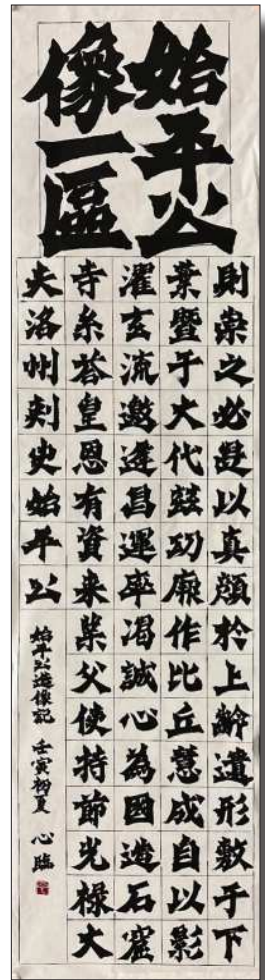 始平公
像一區
則崇之必是以真顔於上齡遺形敷于下
葉暨于大代茲功厥作比丘慧成自以影
濯玄流邀逢昌運率渴誠心為國造石窟
寺糸荅皇恩有資来業父使持節光祿大
夫洛州刺史始平公
始平公造像記 壬寅初夏 心臨